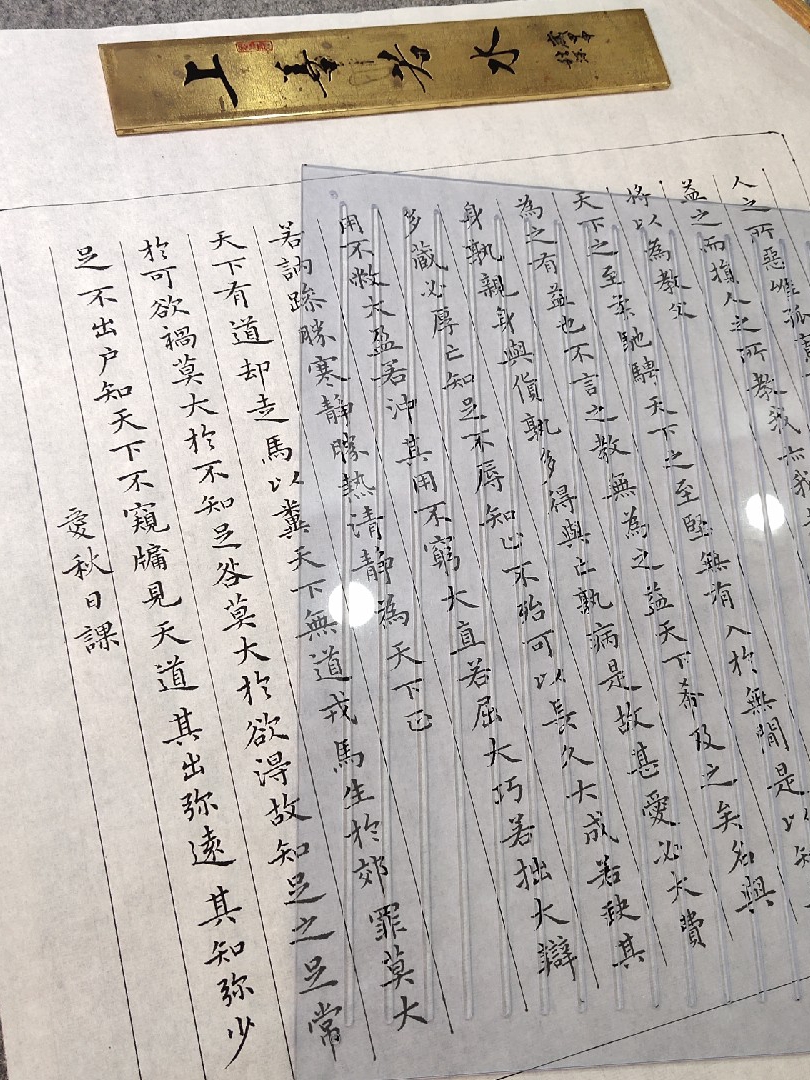 上善若水
人之所惡唯孤寡
益之而損人之所教我亦我
將以為教父
天下之至柔馳騁天下之至堅無有入於無閒是以知
為之有益也不言之教無為之益天下希及之矣名與
身孰親身與貨孰多得與亡孰病是故甚愛必大費
多藏必厚亡知足不辱知止不殆可以長久大成若缺其
用不敝大盈若沖其用不窮大直若屈大巧若拙大辯
若訥躁勝寒靜勝熱清靜為天下正
天下有道却走馬以糞天下無道戎馬生於郊罪莫大
於可欲禍莫大於不知足咎莫大於欲得故知足之足常
足不出户知天下不窺牖見天道其出弥遠其知弥少
愛秋日課